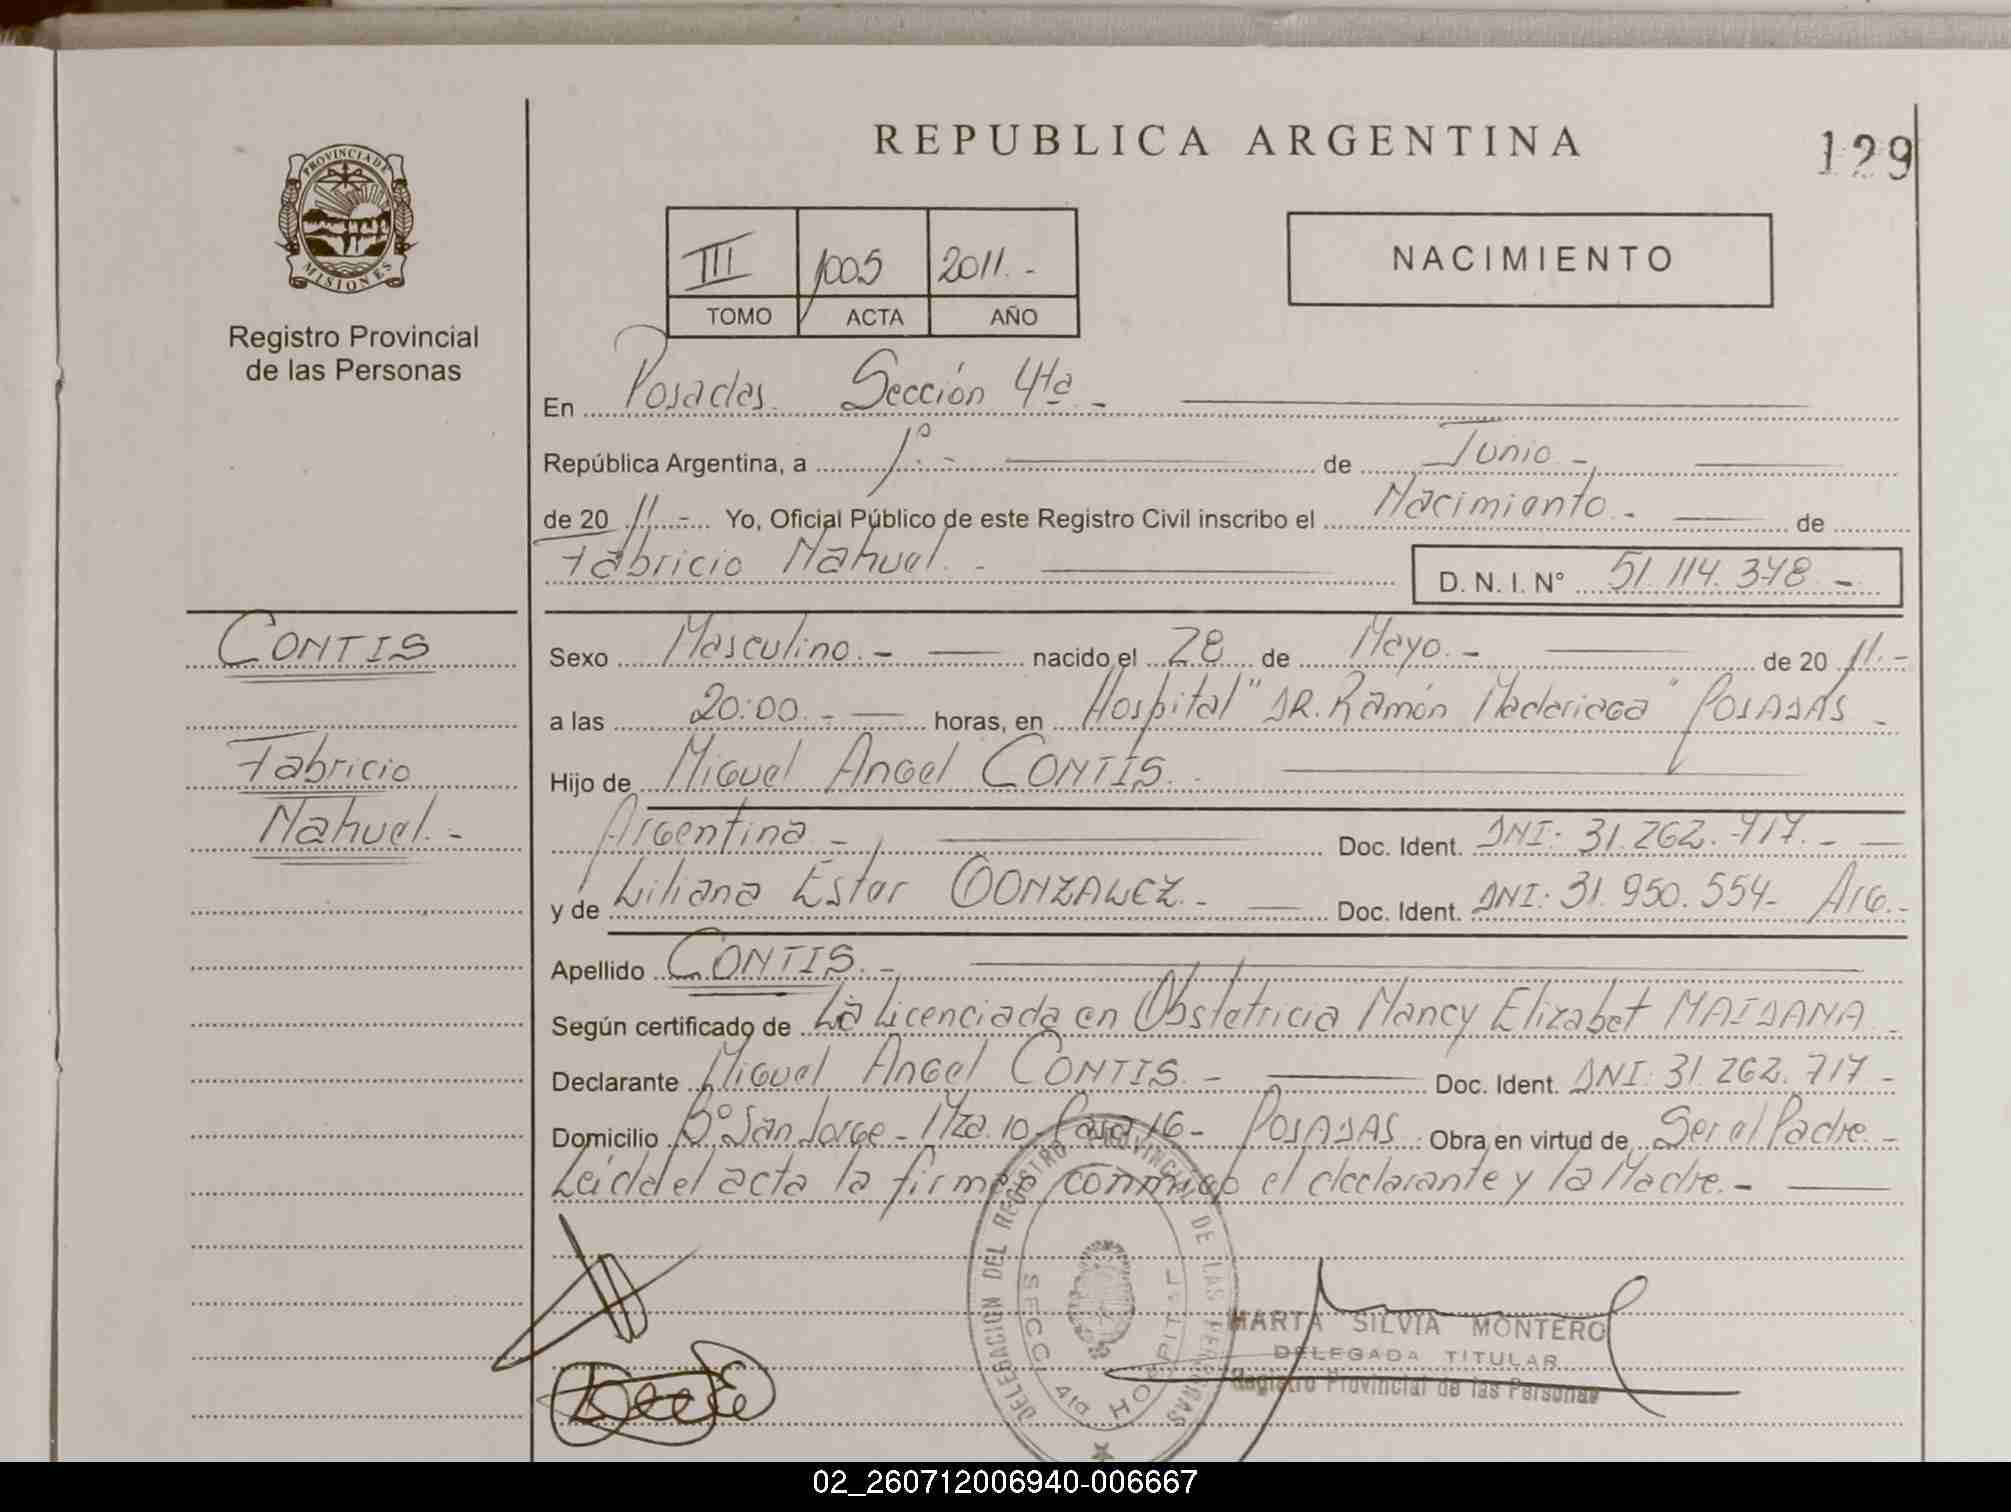 REPUBLICA ARGENTINA
129
PROVINCIA DE
MISIONES
Registro Provincial
de las Personas
III 1005 2011.-
TOMO ACTA AÑO
NACIMIENTO
En Posadas. Sección 4ta.-
República Argentina, a 1º.- de Junio.-
de 20 11.- Yo, Oficial Público de este Registro Civil inscribo el Nacimiento.- de
Fabricio Nahuel.- D. N. I. N° 51.114.348.-
CONTIS
Fabricio
Nahuel.-
Sexo Masculino.- nacido el 28 de Mayo.- de 20 11.-
a las 20:00.- horas, en Hospital "DR. Ramón Madariaga" POSADAS-
Hijo de Miguel Angel CONTIS.
Argentina.- Doc. Ident. DNI: 31.262.717.-
y de Liliana Ester GONZALEZ.- Doc. Ident. DNI: 31.950.554- Arg.-
Apellido CONTIS.-
Según certificado de La Licenciada en Obstetricia Nancy Elizabet MAIDANA-
Declarante Miguel Angel CONTIS.- Doc. Ident. DNI: 31.262.717-
Domicilio Bº San Jorge- Mza.10- Casa 16- POSADAS. Obra en virtud de Ser el Padre.-
Leída el acta la firman conmigo el declarante y la Madre.-
DELEGACION DEL REGISTRO PROVINCIAL DE LAS PERSONAS
SECC. 4ta HOSPITAL
MARTA SILVIA MONTERO
DELEGADA TITULAR
Registro Provincial de las Personas
02_260712006940-006667